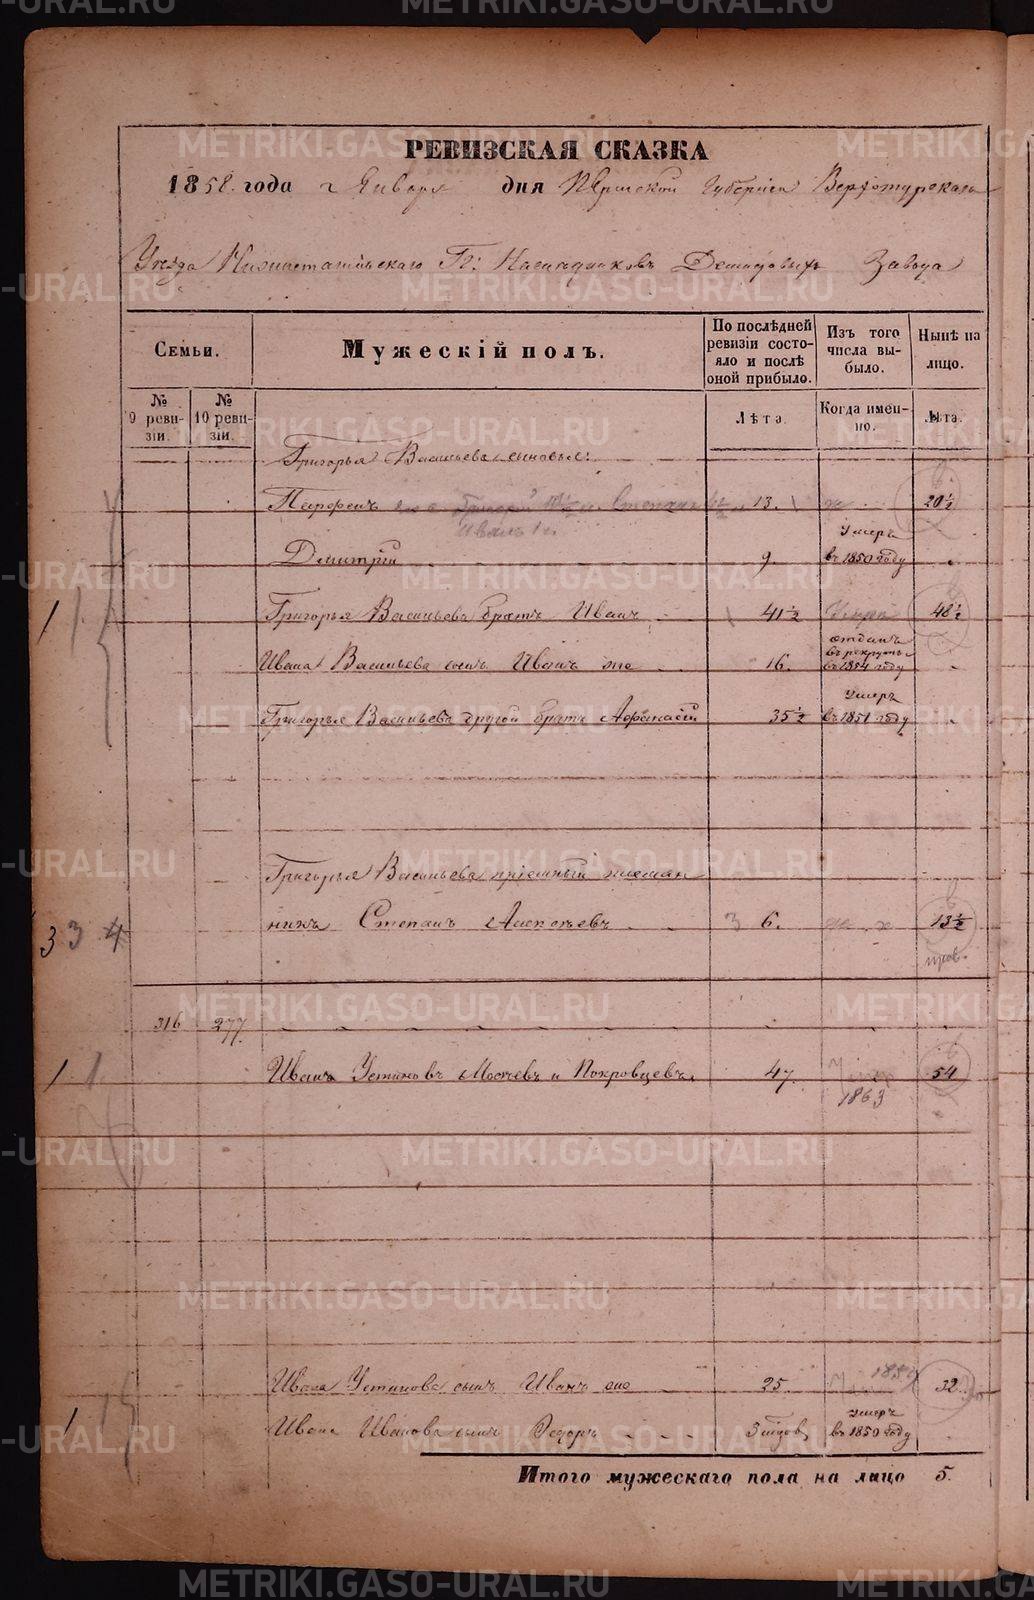 РЕВИЗСКАЯ СКАЗКА
1858 года Января дня Пермской Губернии Верхотурскаго
Уезда Нижнетагильскаго Гг: Наследниковъ Демидовыхъ Завода
Семьи.
Мужескій полъ.
По послѣдней ревизіи состояло и послѣ оной прибыло.
Изъ того числа выбыло.
Нынѣ на лицо.
№ 9 ревизіи.
№ 10 ревизіи.
Лѣта.
Когда именно.
Лѣта.
Григорья Васильева сыновья:
Парфенъ Григорій Степанъ 13. 20½
Иванъ 1
Дмитрій 9. умеръ въ 1850 году
1 Григорья Васильева братъ Иванъ 41½ Умеръ 48½
Ивана Васильева сынъ Иванъ же 16. отданъ въ рекруты въ 1854 году
Григорья Васильева другой братъ Афанасій 35½ умеръ въ 1851 году
Григорья Васильева пріемный племян
3 3 4 никъ Степанъ Алексѣевъ 3 6. 13½
316 277.
1 1. Иванъ Устиновъ Мосеевъ и Покровцевъ. 47. 54
1863
Ивана Устинова сынъ Иванъ же 25. 1859 32
1 Ивана Иванова сынъ Федоръ умеръ въ 1850 году
Итого мужескаго пола на лицо 5.
METRIKI.GASO-URAL.RU